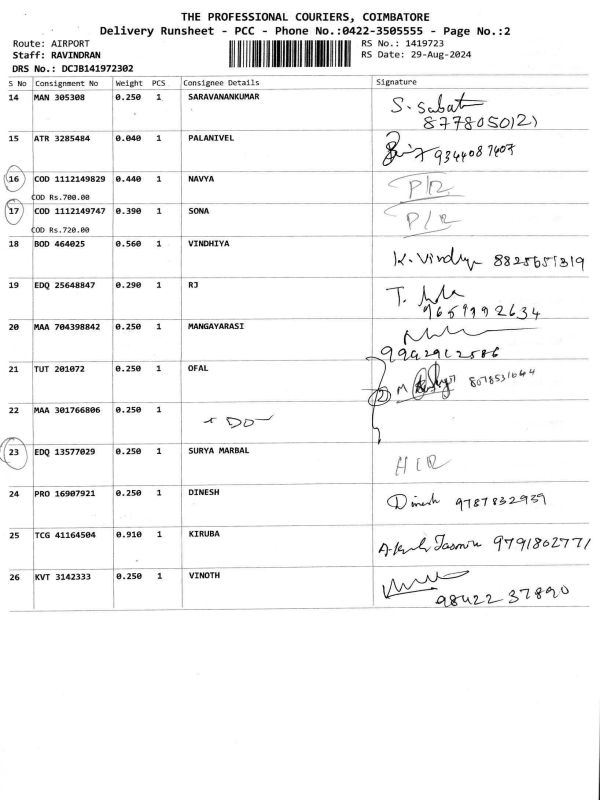 THE PROFESSIONAL COURIERS, COIMBATORE
Delivery Runsheet - PCC - Phone No.:0422-3505555 - Page No.:2
Route: AIRPORT RS No.: 1419723
Staff: RAVINDRAN RS Date: 29-Aug-2024
DRS No.: DCJB141972302
S No Consignment No Weight PCS Consignee Details Signature
14 MAN 305308 0.250 1 SARAVANANKUMAR S. Sabat
877805012)
15 ATR 3285484 0.040 1 PALANIVEL 9344087407
16 COD 1112149829 0.440 1 NAVYA P/R
COD Rs.700.00
17 COD 1112149747 0.390 1 SONA P/R
COD Rs.720.00
18 BOD 464025 0.560 1 VINDHIYA K. Vindhya 8825651319
19 EDQ 25648847 0.290 1 RJ T.
9659992634
20 MAA 704398842 0.250 1 MANGAYARASI
9942912586
21 TUT 201072 0.250 1 OFAL (2) M
22 MAA 301766806 0.250 1 - DO -
23 EDQ 13577029 0.250 1 SURYA MARBAL
24 PRO 16907921 0.250 1 DINESH Dinesh 9787832939
25 TCG 41164504 0.910 1 KIRUBA 9791802771
26 KVT 3142333 0.250 1 VINOTH
98422 37890